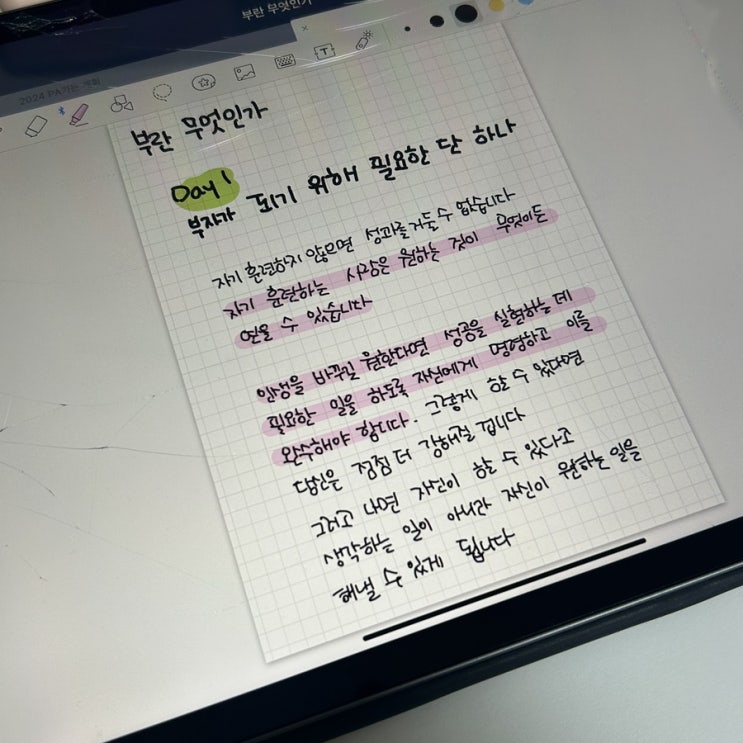 부란 무엇인가
2024 PA가는 계획
부란 무엇인가
Day 1
부자가 되기 위해 필요한 단 하나
자기 훈련하지 않으면 성과를 거둘 수 없습니다
자기 훈련하는 사람은 원하는 것이 무엇이든
얻을 수 있습니다
인생을 바꾸길 원한다면 성공을 실현하는 데
필요한 일을 하도록 자신에게 명령하고 이를
완수해야 합니다. 그렇게 할 수 있다면
당신은 점점 더 강해질 겁니다
그러고 나면 자신이 할 수 있다고
생각하는 일이 아니라 자신이 원하는 일을
해낼 수 있게 됩니다